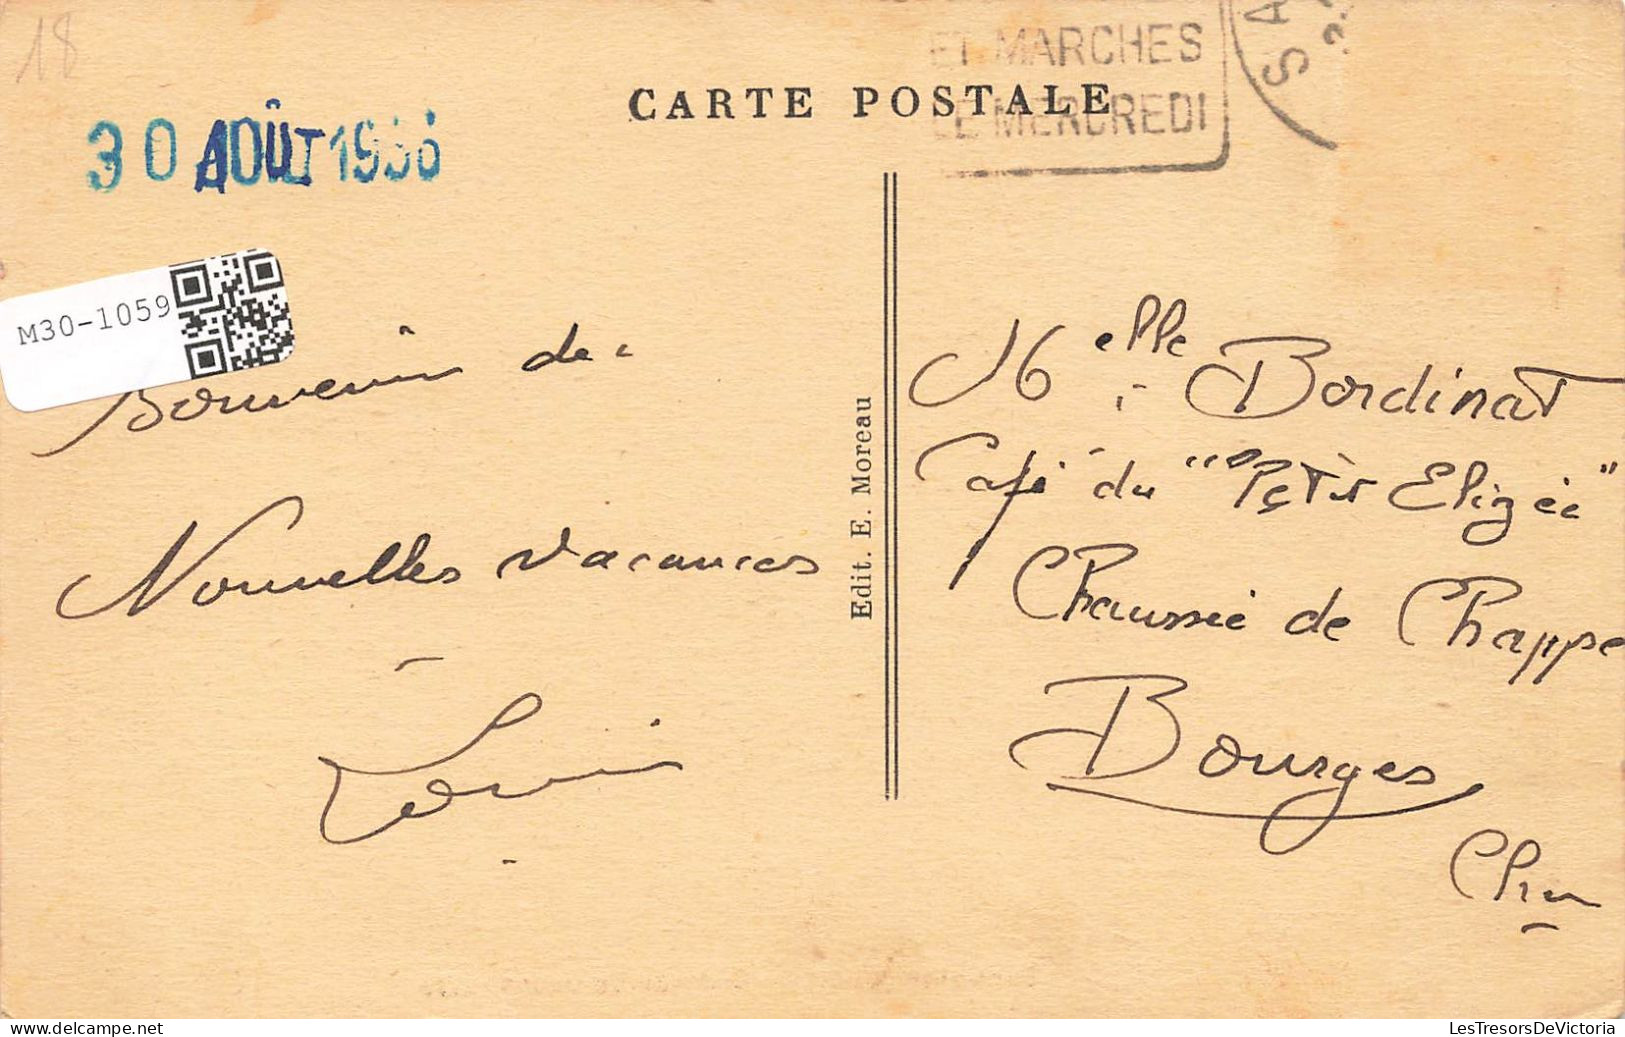 18
ET MARCHES
LE MERCREDI
CARTE POSTALE
30 AOÛT 1936
M30-1059
Souvenir de
Nouvelles vacances
Louis
Edit. E. Moreau
Melle Bordinat
Café du "Petit Elizée"
Chaussée de Chappe
Bourges
Cher
LesTresorsDeVictoria